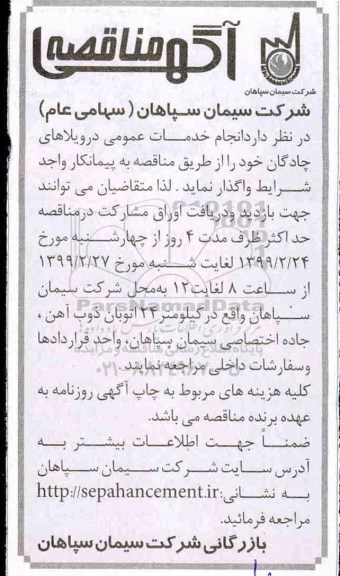 آگهی مناقصه
شرکت سیمان سپاهان
شرکت سیمان سپاهان ( سهامی عام)
در نظر دارد انجام خدمات عمومی در ویلاهای
چادگان خود را از طریق مناقصه به پیمانکار واجد
شرایط واگذار نماید . لذا متقاضیان می توانند
جهت بازدید و دریافت اوراق مشارکت در مناقصه
حداکثر ظرف مدت ۴ روز از چهارشنبه مورخ
۱۳۹۹/۲/۲۴ لغایت شنبه مورخ ۱۳۹۹/۲/۲۷
از ساعت ۸ لغایت ۱۲ به محل شرکت سیمان
سپاهان واقع در کیلومتر ۳۴ اتوبان ذوب آهن ،
جاده اختصاصی سیمان سپاهان، واحد قراردادها
وسفارشات داخلی مراجعه نمایند.
کلیه هزینه های مربوط به چاپ آگهی روزنامه به
عهده برنده مناقصه می باشد.
ضمناً جهت اطلاعات بیشتر به
آدرس سایت شرکت سیمان سپاهان
به نشانی: http://sepahancement.ir
مراجعه فرمائید.
بازرگانی شرکت سیمان سپاهان
ParsNamadData